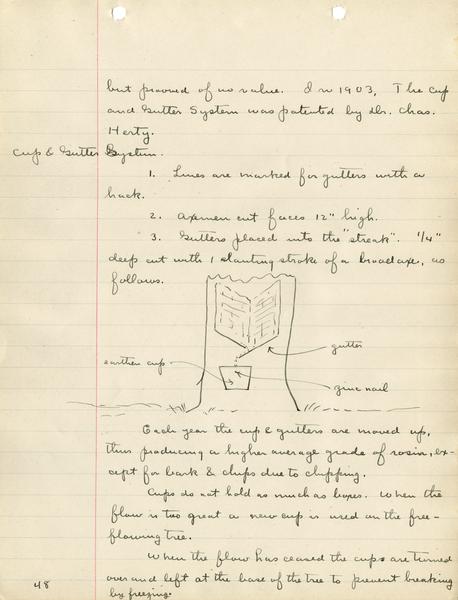 but proved of no value. In 1903, The Cup
and Gutter System was patented by Dr. Chas.
Herty.
Cup & Gutter System.
1. Lines are marked for gutters with a
hack.
2. Axemen cut faces 12" high.
3. Gutters placed into the "streak". 1/4"
deep cut with 1 slanting stroke of a broadaxe, as
follows.
gutter
earthen cup
zinc nail
Each year the cup & gutters are moved up,
thus producing a higher average grade of rosin, ex-
cept for bark & chips due to chipping.
Cups do not hold as much as boxes. When the
flow is too great a new cup is used on the free-
flowing tree.
When the flow has ceased the cups are turned
over and left at the base of the tree to prevent breaking
by freezing.
48